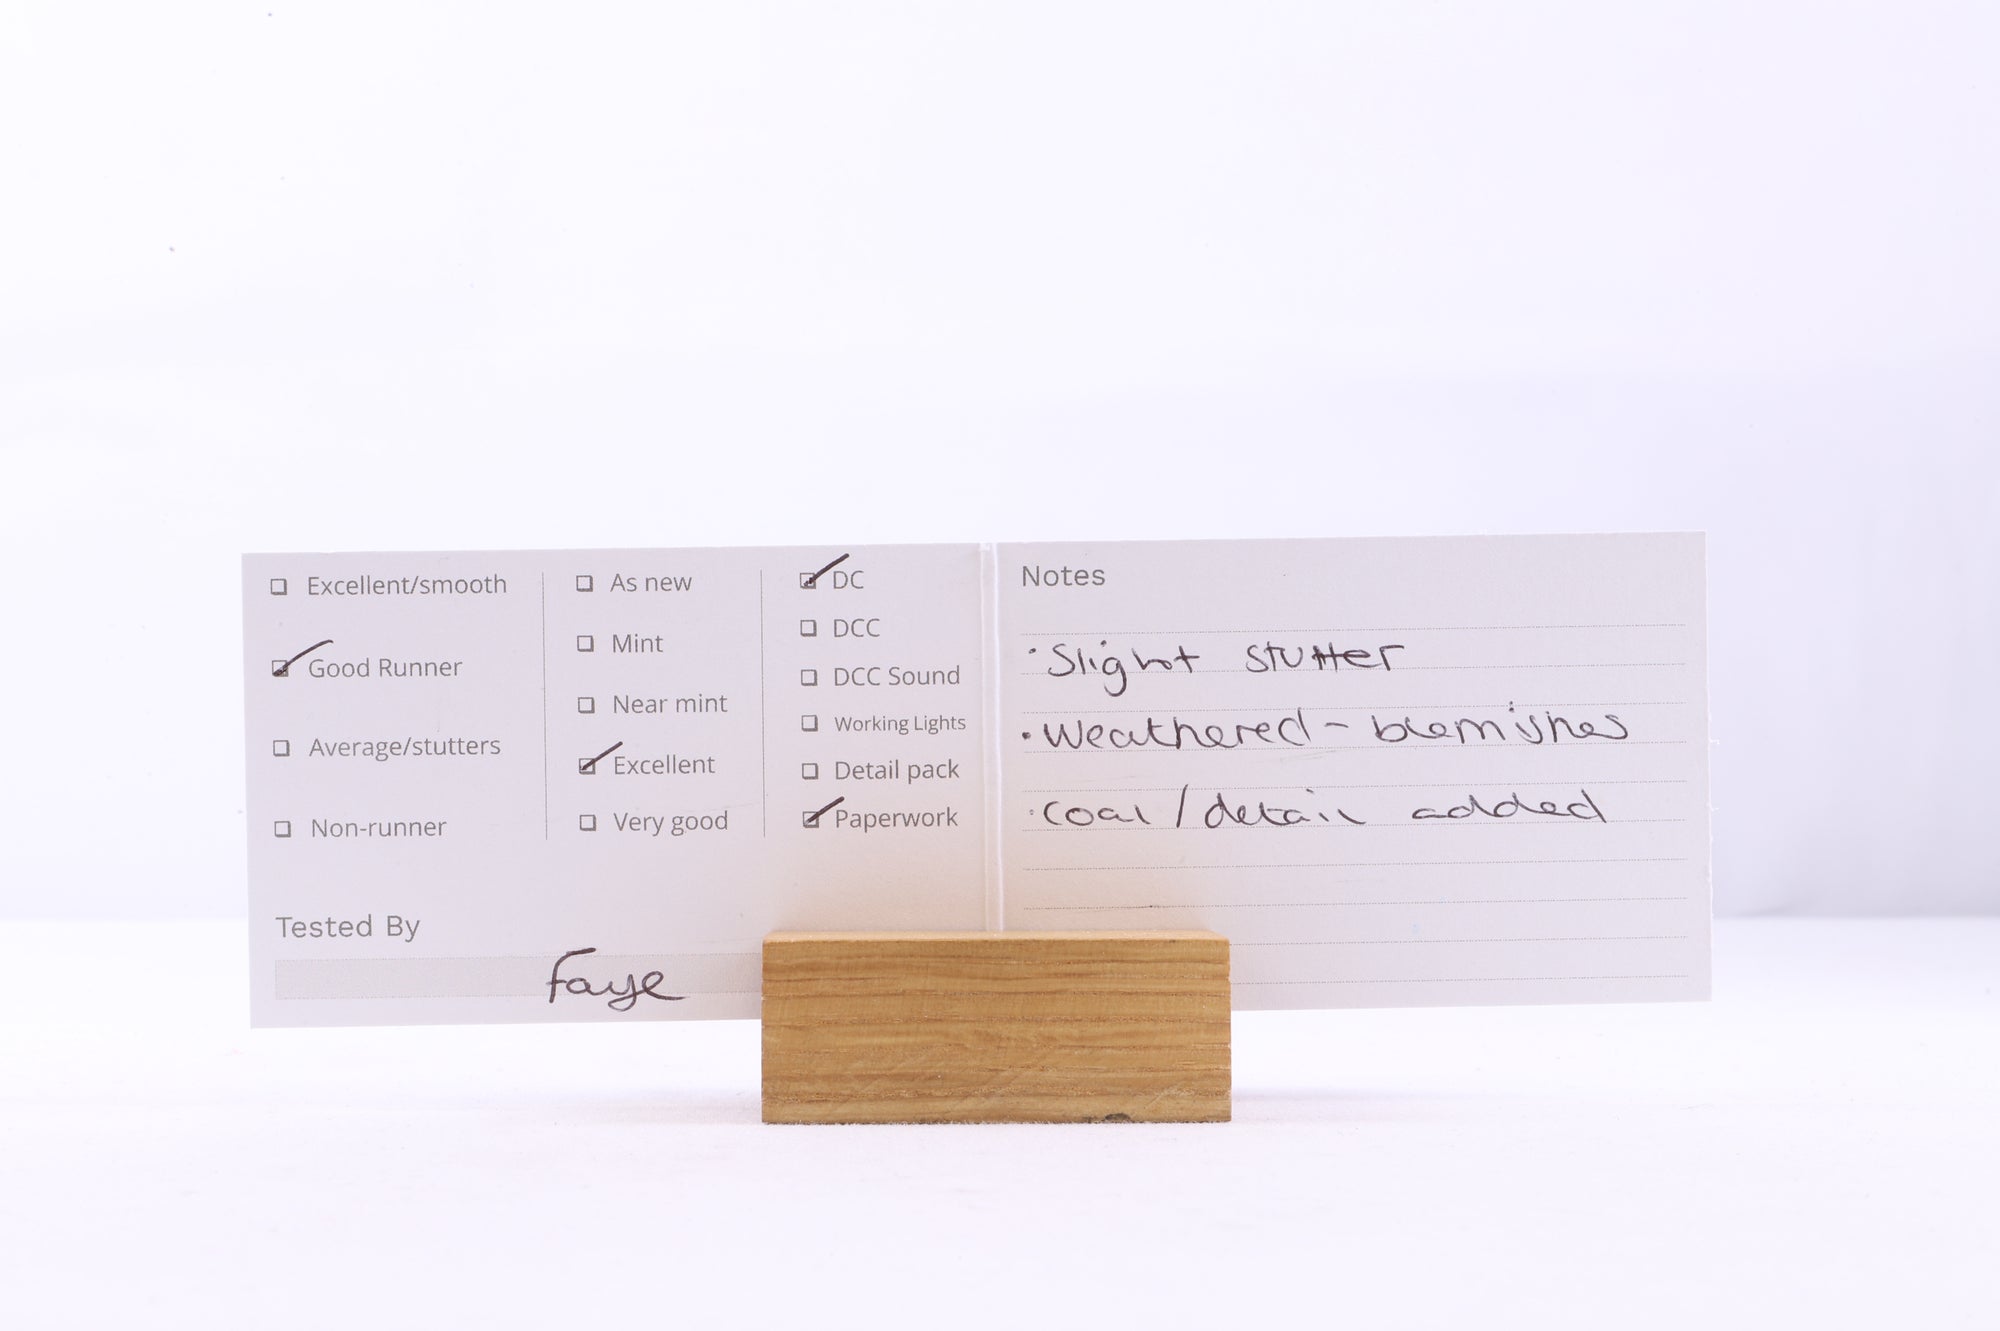 Excellent/smooth
Good Runner
Average/stutters
Non-runner
As new
Mint
Near mint
Excellent
Very good
DC
DCC
DCC Sound
Working Lights
Detail pack
Paperwork
Tested By
Faye
Notes
· Slight stutter
· Weathered - blemishes
· coal / detail added